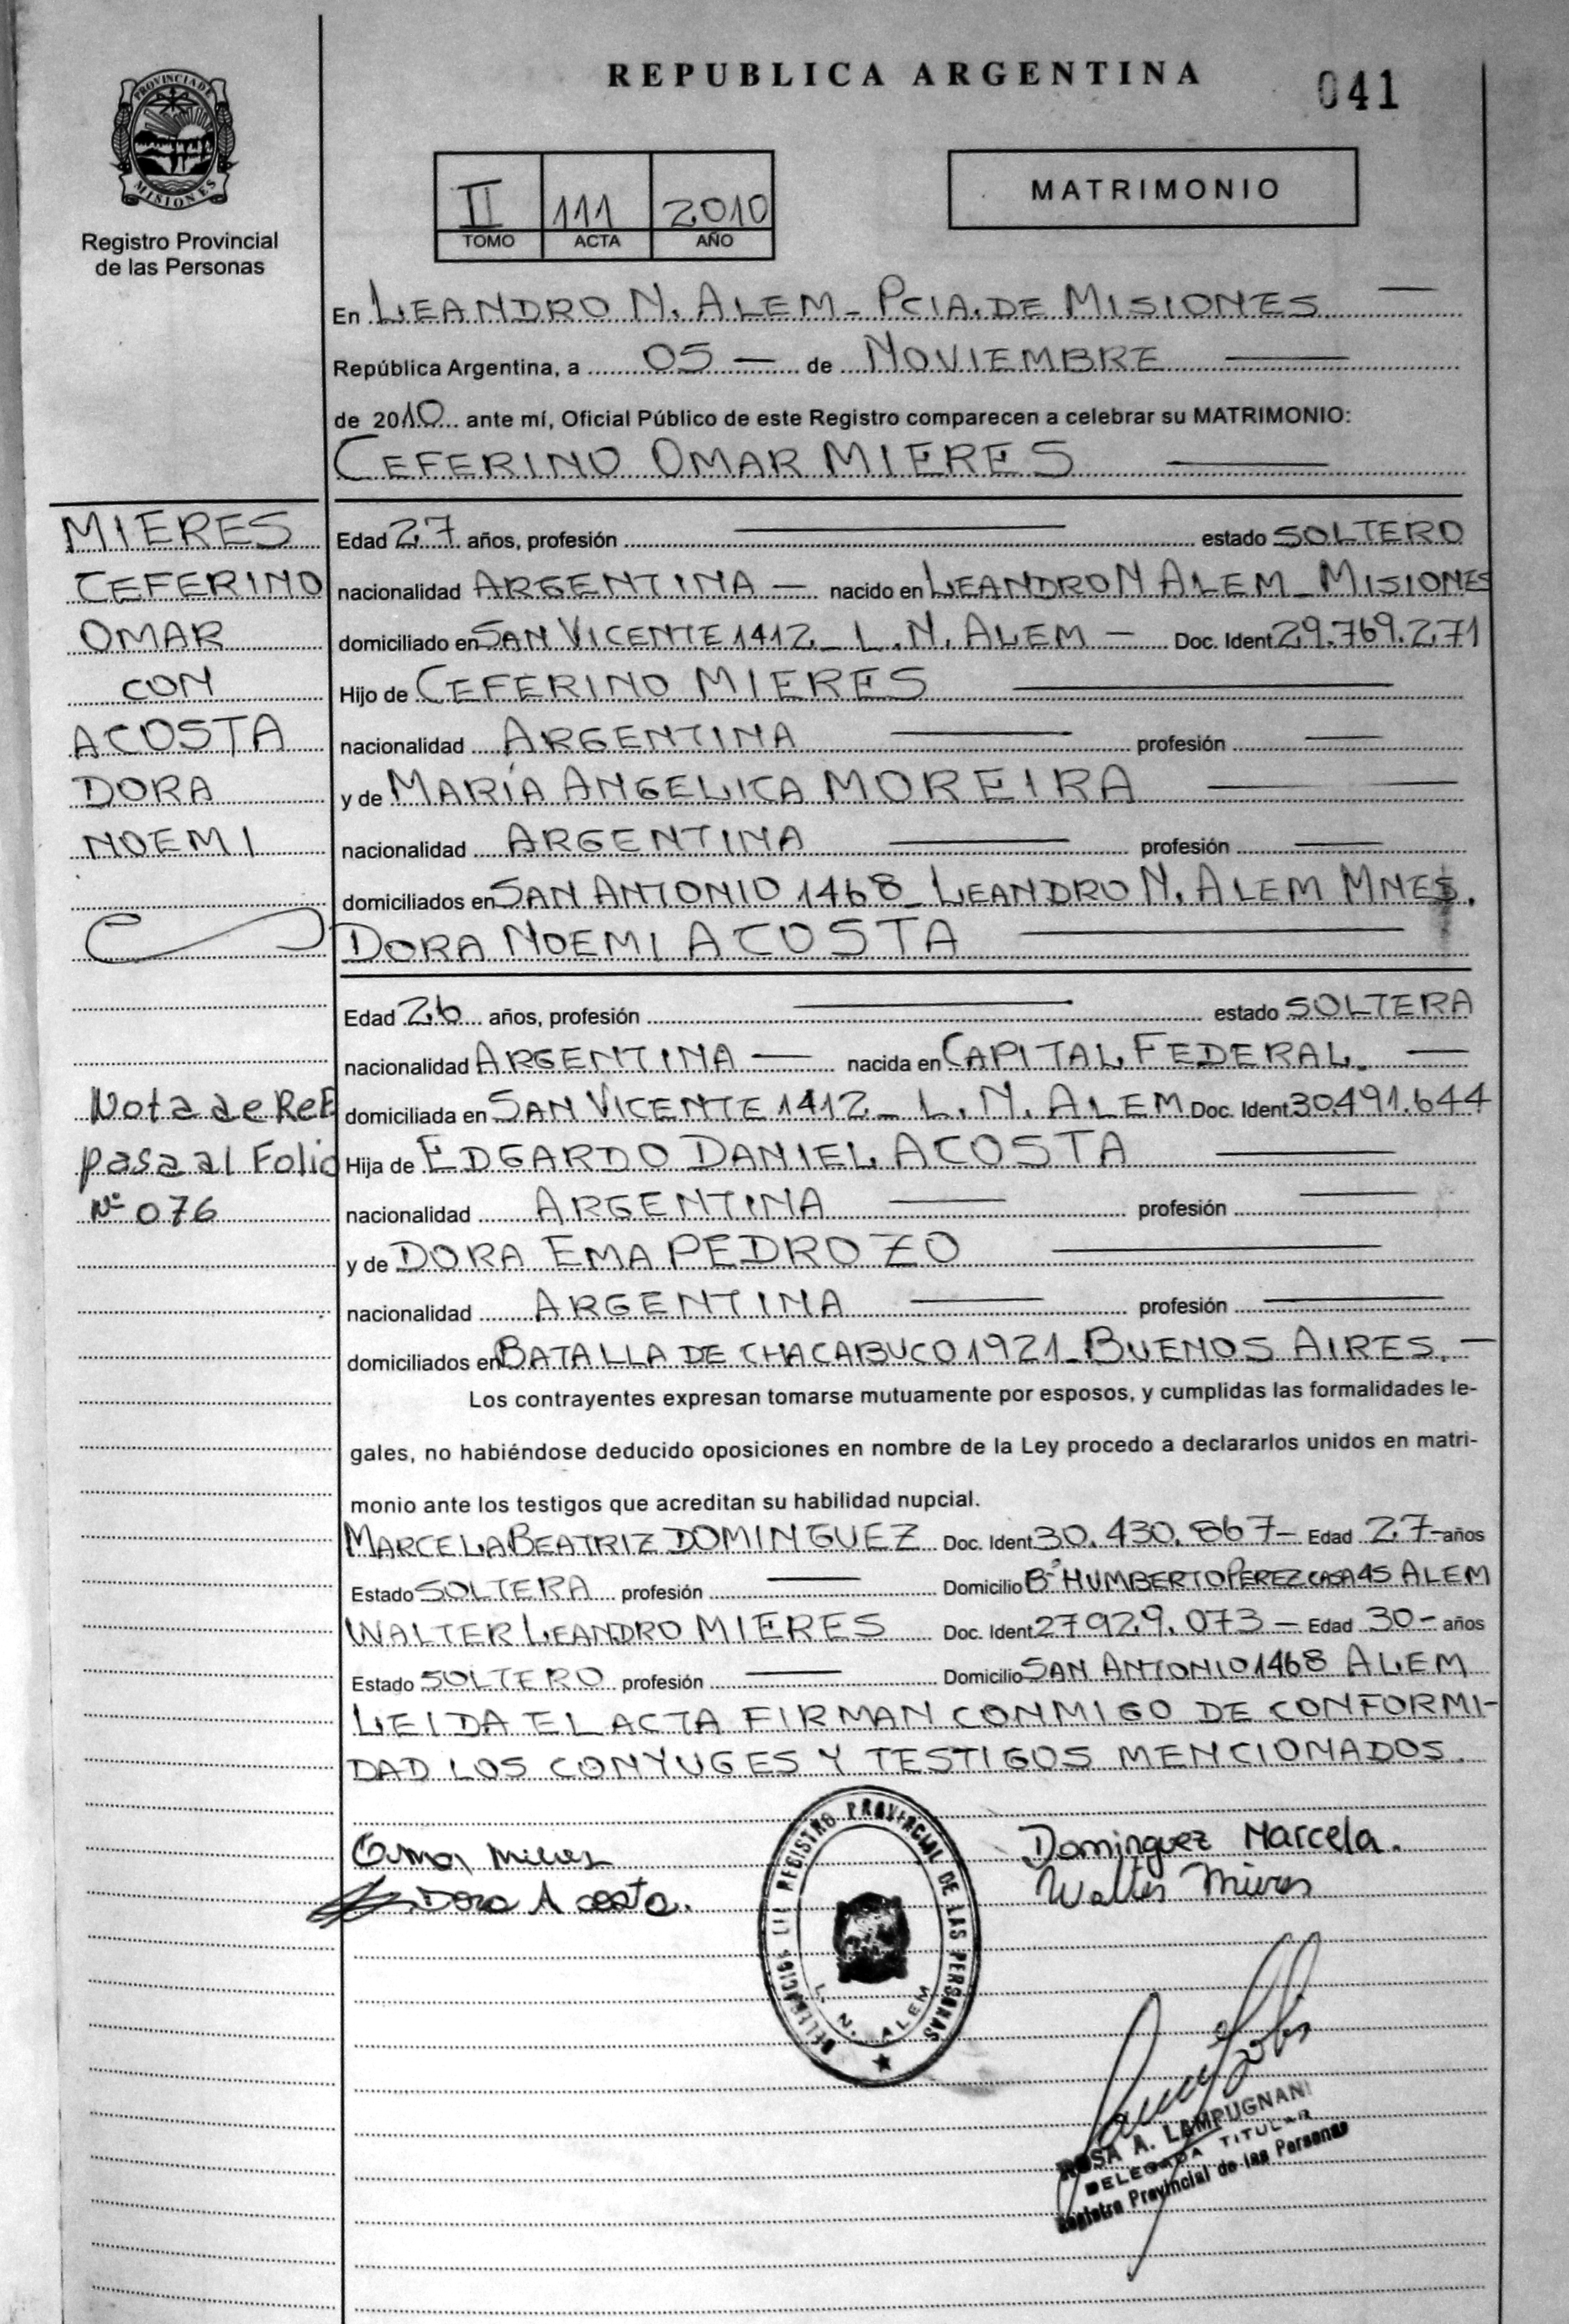 REPUBLICA ARGENTINA
041
PROVINCIA DE
MISIONES
Registro Provincial
de las Personas
II 111 2010
TOMO ACTA AÑO
MATRIMONIO
En LEANDRO N. ALEM - PCIA. DE MISIONES
República Argentina, a 05 — de NOVIEMBRE
de 2010 ante mí, Oficial Público de este Registro comparecen a celebrar su MATRIMONIO:
CEFERINO OMAR MIERES
MIERES
CEFERINO
OMAR
CON
ACOSTA
DORA
NOEMI
Edad 27 años, profesión — estado SOLTERO
nacionalidad ARGENTINA — nacido en LEANDRO N ALEM - MISIONES
domiciliado en SAN VICENTE 1412 - L. N. ALEM — Doc. Ident 29.769.271
Hijo de CEFERINO MIERES
nacionalidad ARGENTINA — profesión —
y de MARÍA ANGELICA MOREIRA
nacionalidad ARGENTINA — profesión —
domiciliados en SAN ANTONIO 1468 - LEANDRO N. ALEM MNES.
DORA NOEMI ACOSTA
Edad 26 años, profesión — estado SOLTERA
nacionalidad ARGENTINA — nacida en CAPITAL FEDERAL. —
domiciliada en SAN VICENTE 1412 - L. N. ALEM Doc. Ident 30.491.644
Hija de EDGARDO DANIEL ACOSTA
nacionalidad ARGENTINA — profesión —
y de DORA EMA PEDROZO
nacionalidad ARGENTINA — profesión —
domiciliados en BATALLA DE CHACABUCO 1921 - BUENOS AIRES. —
Nota de Ref
pasa al Folio
Nº 076
Los contrayentes expresan tomarse mutuamente por esposos, y cumplidas las formalidades le-
gales, no habiéndose deducido oposiciones en nombre de la Ley procedo a declararlos unidos en matri-
monio ante los testigos que acreditan su habilidad nupcial.
MARCELA BEATRIZ DOMINGUEZ Doc. Ident 30.430.867 - Edad 27 - años
Estado SOLTERA profesión — Domicilio Bº HUMBERTO PEREZ CASA 45 ALEM
WALTER LEANDRO MIERES Doc. Ident 27929.073 - Edad 30 - años
Estado SOLTERO profesión — Domicilio SAN ANTONIO 1468 ALEM
LEIDA EL ACTA FIRMAN CONMIGO DE CONFORMI-
DAD LOS CONYUGES Y TESTIGOS MENCIONADOS.
Omar Mieres
Dora Acosta.
Dominguez Marcela.
Walter Mieres
REGISTRO PROVINCIAL DE LAS PERSONAS
L. N. ALEM
ROSA A. LAMPUGNANI
DELEGADA TITULAR
Registro Provincial de las Personas